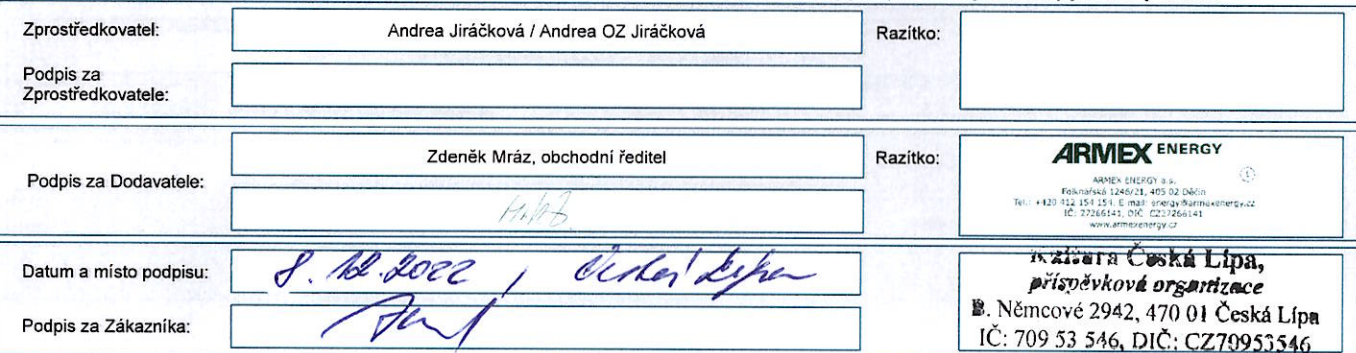 Zprostředkovatel: Andrea Jiráčková / Andrea OZ Jiráčková Razítko:
Podpis za
Zprostředkovatele:
Zdeněk Mráz, obchodní ředitel Razítko:
Podpis za Dodavatele:
ARMEX ENERGY
ARMEX ENERGY a.s.
Folknářská 1246/21, 405 02 Děčín
Tel.: +420 412 154 154, E mail: energy@armexenergy.cz
IČ: 27266141, DIČ: CZ27266141
www.armexenergy.cz
Datum a místo podpisu: 8. 12. 2022, Česká Lípa
Podpis za Zákazníka:
Česká Lípa,
příspěvková organizace
B. Němcové 2942, 470 01 Česká Lípa
IČ: 709 53 546, DIČ: CZ70953546